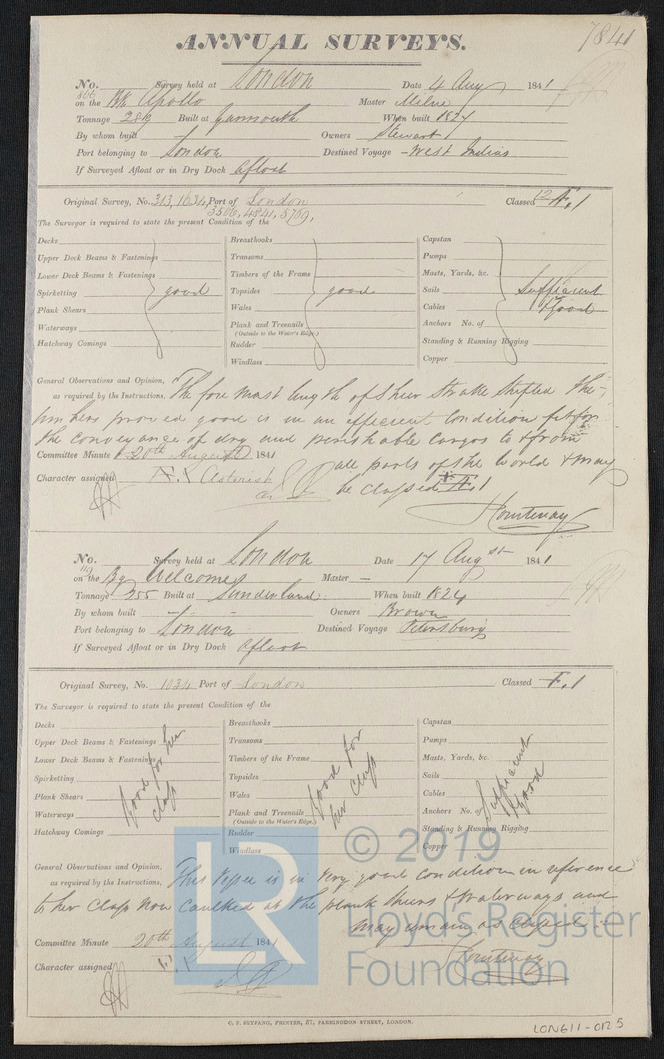 7841
ANNUAL SURVEYS.
No. 866 Survey held at London Date 4 Aug 1841
on the Bk Apollo Master Milne
Tonnage Built at Yarmouth When built 1824
By whom built Owners Stewart
Port belonging to London Destined Voyage West Indies
If Surveyed Afloat or in Dry Dock afloat
Original Survey, No. 313, 1634, Port of London Classed
3506, 4841, 5709,
The Surveyor is required to state the present Condition of the
Decks Breasthooks Capstan
Upper Deck Beams & Fastenings Transoms Pumps
Lower Deck Beams & Fastenings Timbers of the Frame Masts, Yards, &c.
Spirketting good Topsides good Sails Sufficient
Plank Shears Wales Cables & Good
Waterways Plank and Treenails Anchors No. of
(Outside to the Water's Edge)
Hatchway Comings Rudder Standing & Running Rigging
Windlass Copper
General Observations and Opinion, The fore most length of Sheer Strake Shifted the
as required by the Instructions, timbers proved good is in an efficient Condition fit for
the conveyance of dry and perishable Cargos to & from
Committee Minute 20th August 1841 all parts of the World & may
Character assigned Asterisk be Classed Æ.1
Courtenay
No. 119 Survey held at London Date 17 Augst 1841
on the Bg Welcome Master —
Tonnage 255 Built at Sunderland When built 1824
By whom built — — Owners Brown
Port belonging to London Destined Voyage Petersburg
If Surveyed Afloat or in Dry Dock afloat
Original Survey, No. 1034 Port of London Classed Æ.1
The Surveyor is required to state the present Condition of the
Decks Breasthooks Capstan
Upper Deck Beams & Fastenings Transoms Pumps
Lower Deck Beams & Fastenings Timbers of the Frame Masts, Yards, &c.
Spirketting Topsides Sails
Plank Shears Good for her class Wales Good for her Class Cables Sufficient & Good
Waterways Plank and Treenails Anchors No. of
(Outside to the Water's Edge.)
Hatchway Comings Rudder Standing & Running Rigging
Windlass Copper
General Observations and Opinion, This Vessel is in very good condition in reference
as required by the Instructions, to her Class Now Caulked at the plank Shears & Waterways and
may remain as classed
Committee Minute 20th August 1841
Character assigned Æ.1 Courtenay
C. F. SEYFANG, PRINTER, 57, FARRINGDON STREET, LONDON.
LON611-0125
LR
© 2019
Lloyd's Register
Foundation